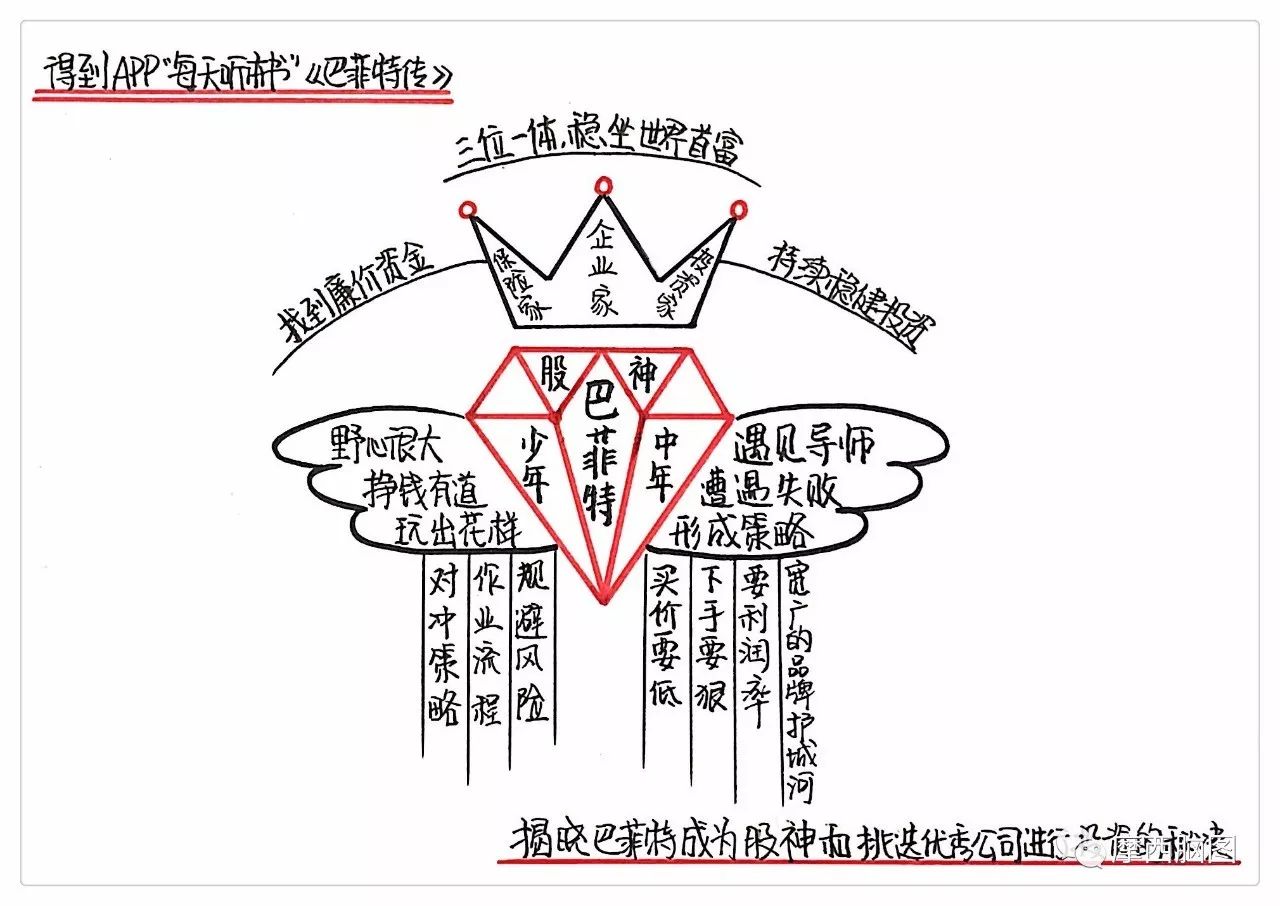 得到APP“每天听本书”《巴菲特传》
三位一体,稳坐世界首富
找到廉价资金
保险家
企业家
投资家
持续稳健投资
股神
巴菲特
少年
中年
野心很大
挣钱有道
玩出花样
遇见导师
遭遇失败
形成策略
对冲策略
作业流程
规避风险
买价要低
下手要狠
要利润率
宽广的品牌护城河
揭晓巴菲特成为股神和挑选优秀公司进行投资的秘诀
摩西脑图